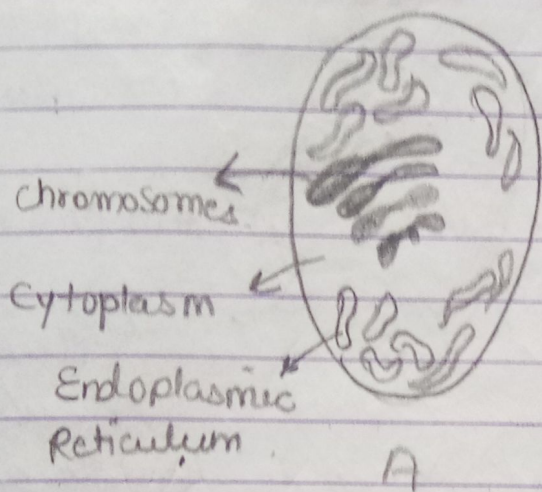 Chromosomes
Cytoplasm
Endoplasmic
Reticulum
A